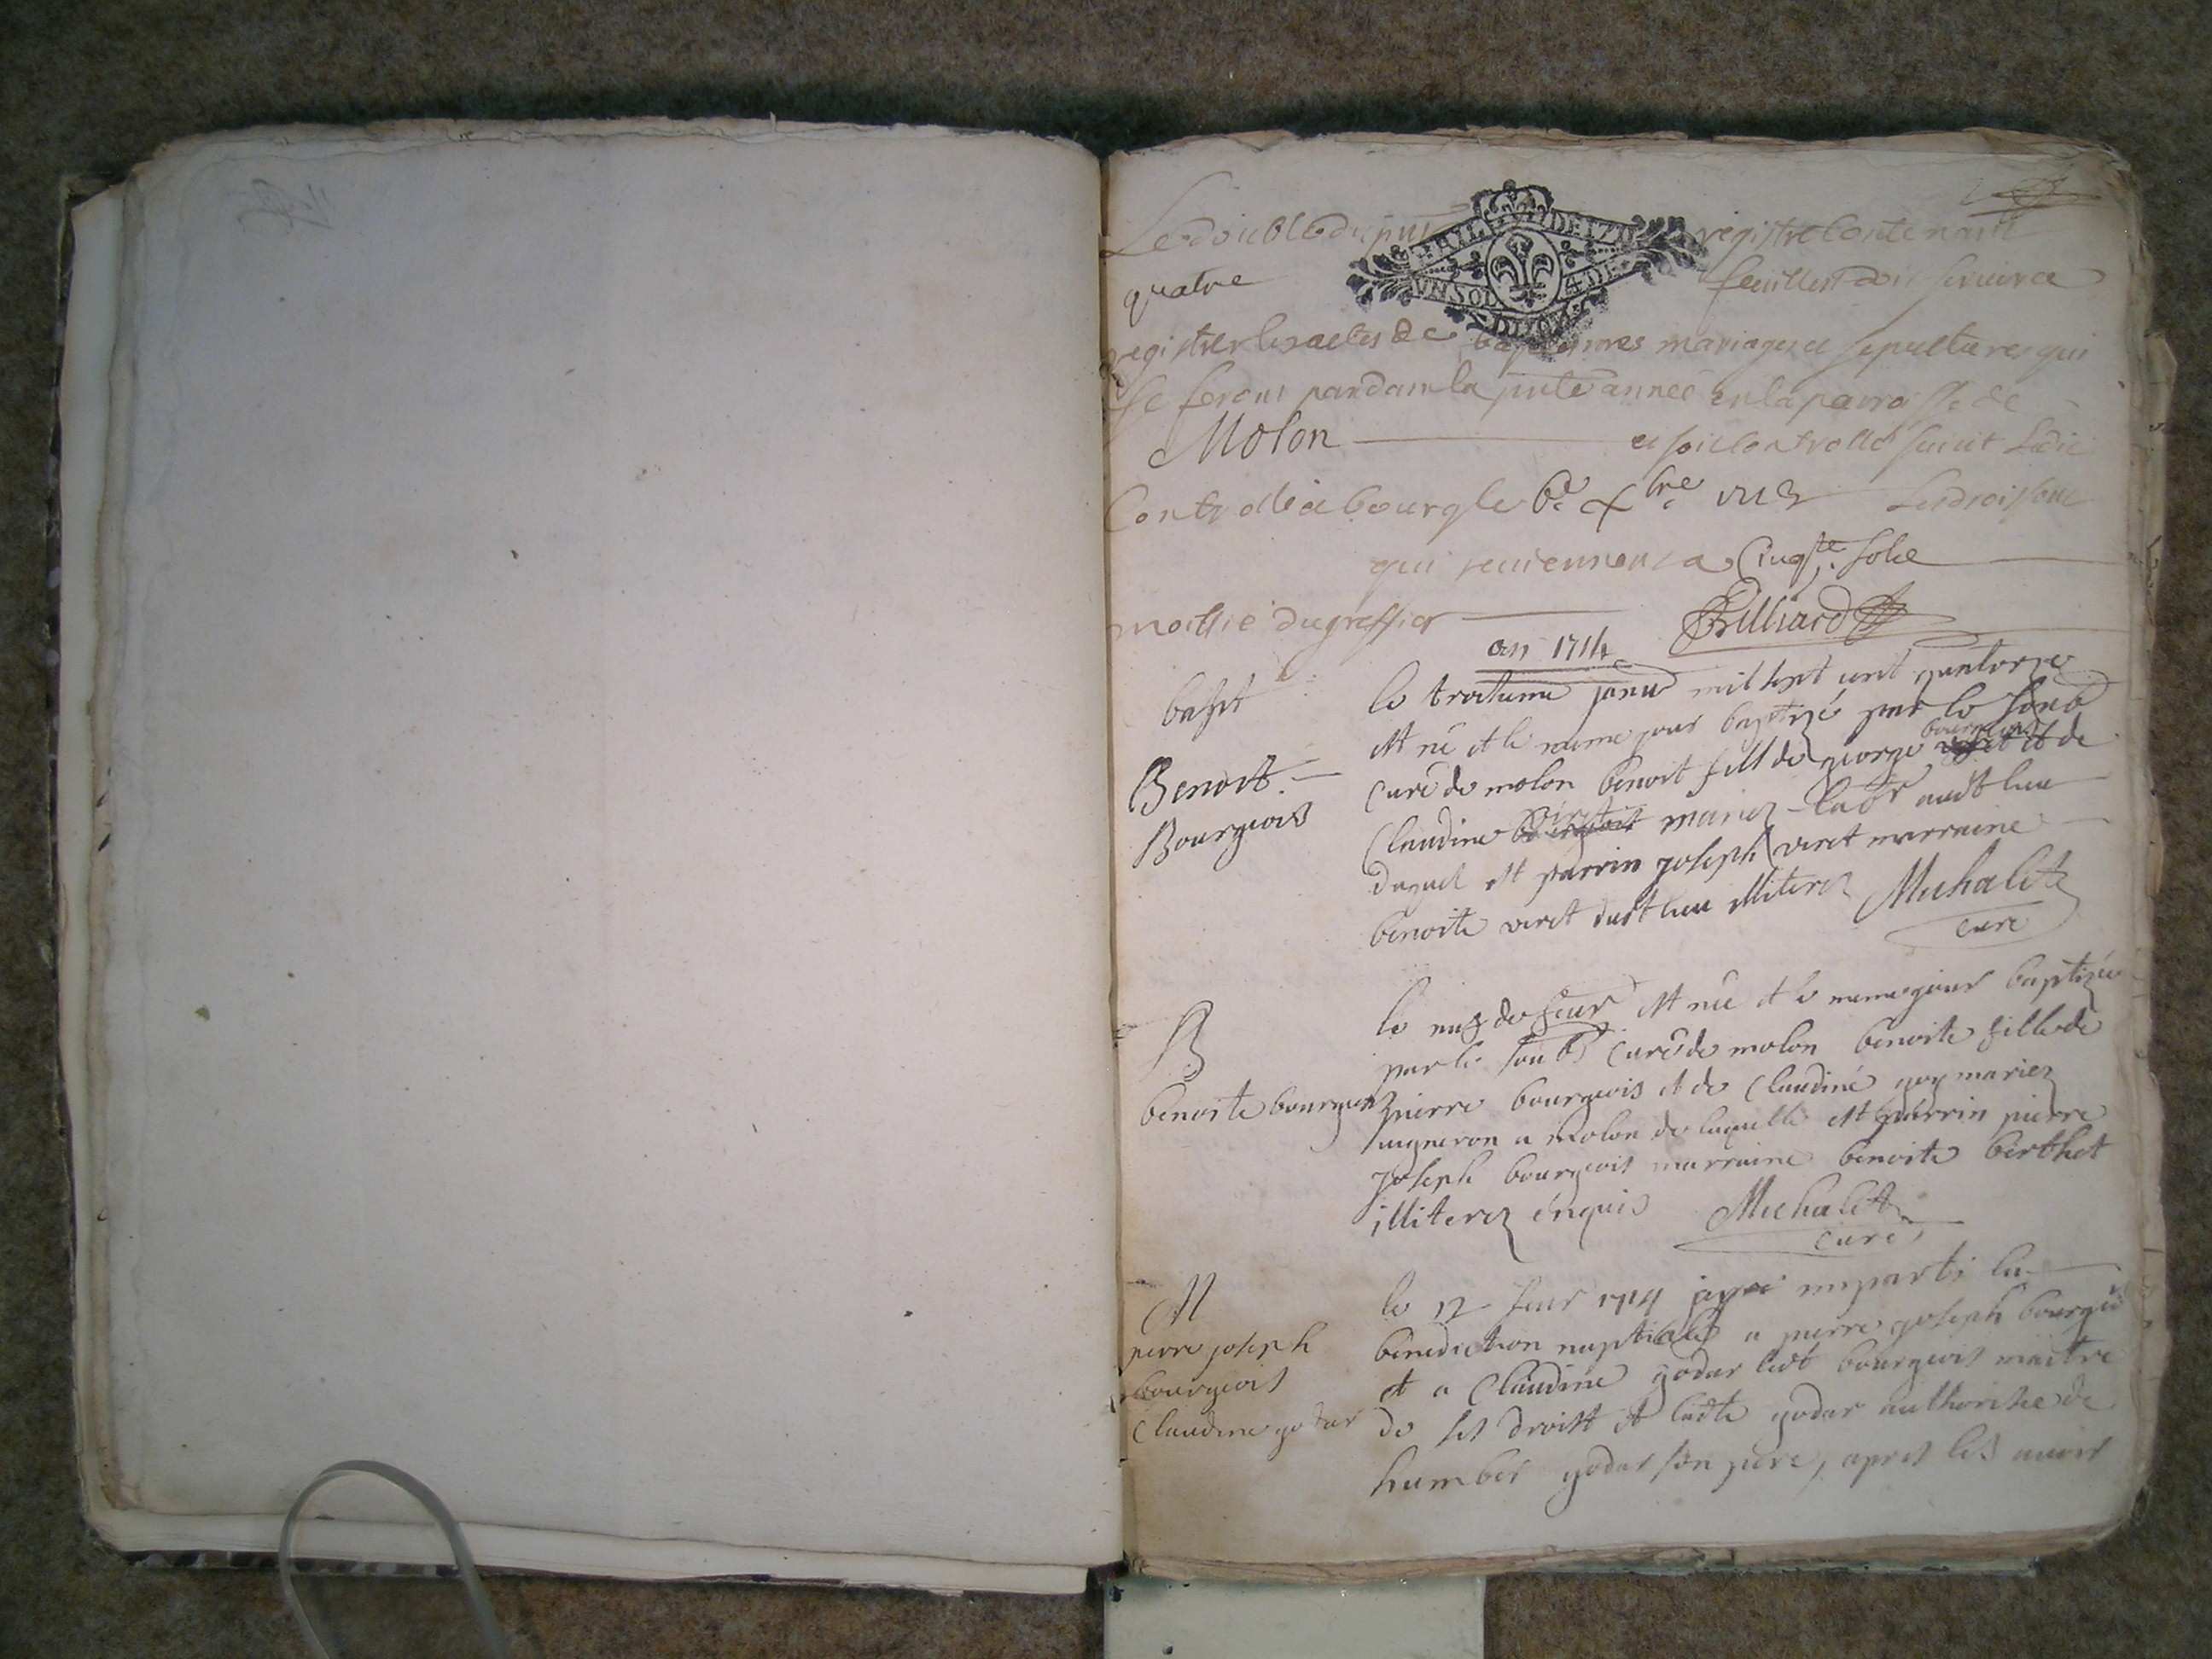 Le double du pnt registre contenant
quatre feuillets
registrer les actes de baptesmes mariages et sepultures qui
se feront pandant la pnte année en la parroisse de
Molon et soit controllé suiut Ledit
Controlle a bourg le 6e xbre Les droits sont
qui reviennent a Cinqte sols
moitié du greffier
Billiard
an 1714
bapt
le troisieme janv mil sept cent quatorze
est né et le meme jour baptizé par le soub
Benoit
curé de molon benoit fils de george bourgeois et de
Bourgeois
Claudine viret mariez labr audt lieu
duquel est parrin joseph viret marraine
benoite viret dudt lieu illiterez Michalet
curé
B
le de feur est née et le meme jour baptizée
par le soub curé de molon benoite fille de
benoite bourgeois
pierre bourgeois et de Claudine goy mariez
vigneron a molon de laquelle est parrin pierre
joseph bourgeois marraine benoite berthet
illiterez enquis Michalet
curé
M
le 12 feur 1714 jay imparti la
pierre joseph
benediction nuptiale a pierre joseph bourgeois
bourgeois
et a Claudine godar ledt bourgeois maitre
Claudine godar
de ses droits et ladte godar authorisée de
humber godar son pere, apres les avoir